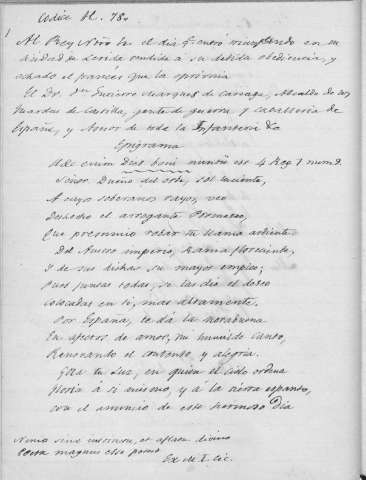 Codice H. 78.
Al Rey Nro Sr el dia q entró triunfando en su
ciudad de Lerida rendida á su debida obediencia, y
echado el francés que la oprimia
El Dr. Dn Gutierre Marques de Careaga, Alcalde de
Guardas de Castilla, gente de guerra y caballeria de
España, y Asesor de toda la Infanteria &a
Epigrama
enim Dies boni nuntii est 4 Reg. 7 num 9.
Señor, Dueño del orbe, sol luciente,
A cuyos soberanos rayos, veo
Deshecho el arrogante
Que presumió robar tu llama ardiente
Del Austro imperio, Rama floreciente,
I de sus dichas su mayor empleo;
Pues juntas todas, se las dió el deseo
colocadas en ti, mas altamente.
Por España, te dá la norabuena
En afectos de amor, mi humilde Canto,
Renovando el contento y alegria.
Goza tu Luz, en quien el cielo ordena
Gloria á si mismo, y á la tierra espanto,
con el anuncio de este hermoso Dia
Nemo sine et afflatu divino
Poeta magnus esse potest
Ex M. T. Cic.